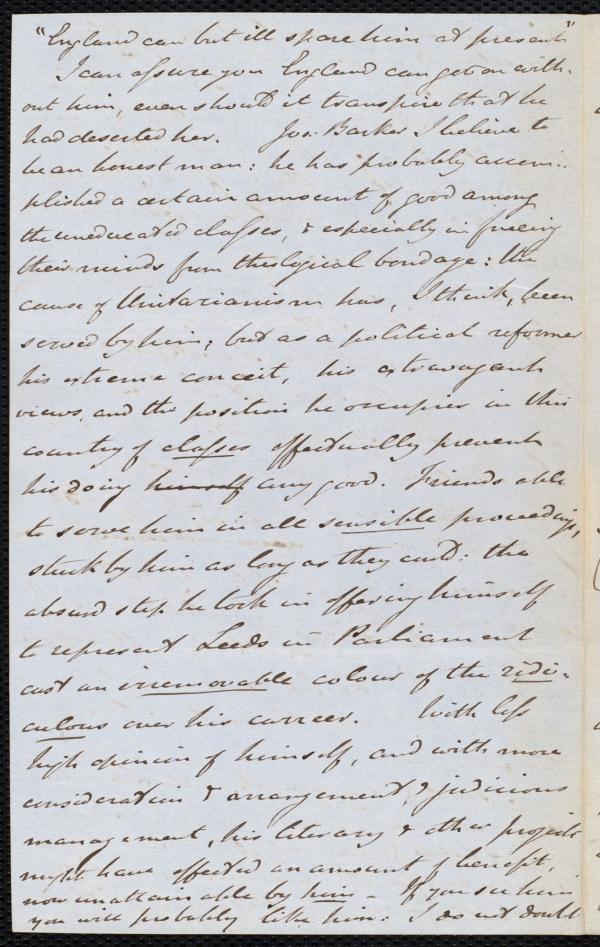 "England can but ill spare him at present"
I can assure you England can get on with-
out him, even should it transpire that he
had deserted her. Jos: Barker I believe to
be an honest man: he has probably accom-
plished a certain amount of good among
the uneducated classes, & especially in freeing
their minds from theological bondage: the
cause of Unitarianism has, I think, been
served by him; but as a political reformer
his extreme conceit, his extravagant
views, and the position he occupies in this
country of classes effectually prevent
his doing himself any good. Friends able
to serve him in all sensible proceedings,
stuck by him as long as they could: the
absurd step he took in offering himself
to represent Leeds in Parliament
cast an irremovable colour of the ridi-
culous over his carreer. With less
high opinion of himself, and with more
consideration & arrangement, & judicious
management, his literary & other projects
might have effected an amount of benefit,
now unattainable by him - If you see him
you will probably like him: I do not doubt